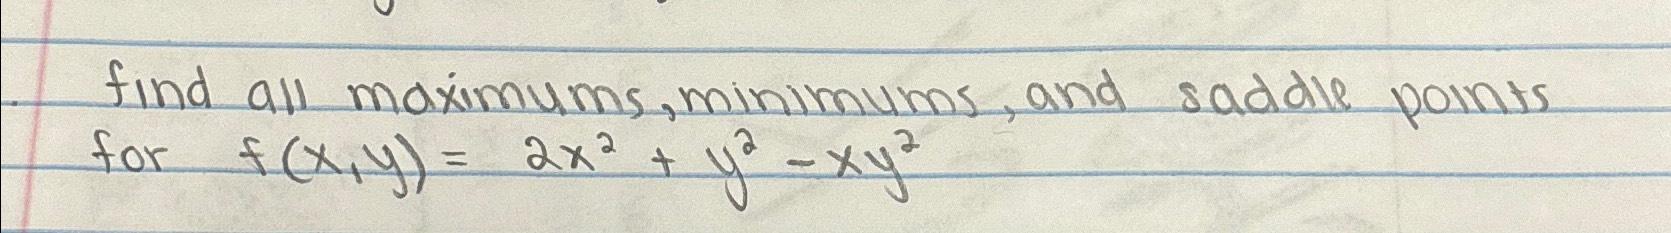 find all maximums, minimums, and saddle points
for f(x,y) = 2x² + y² - xy²